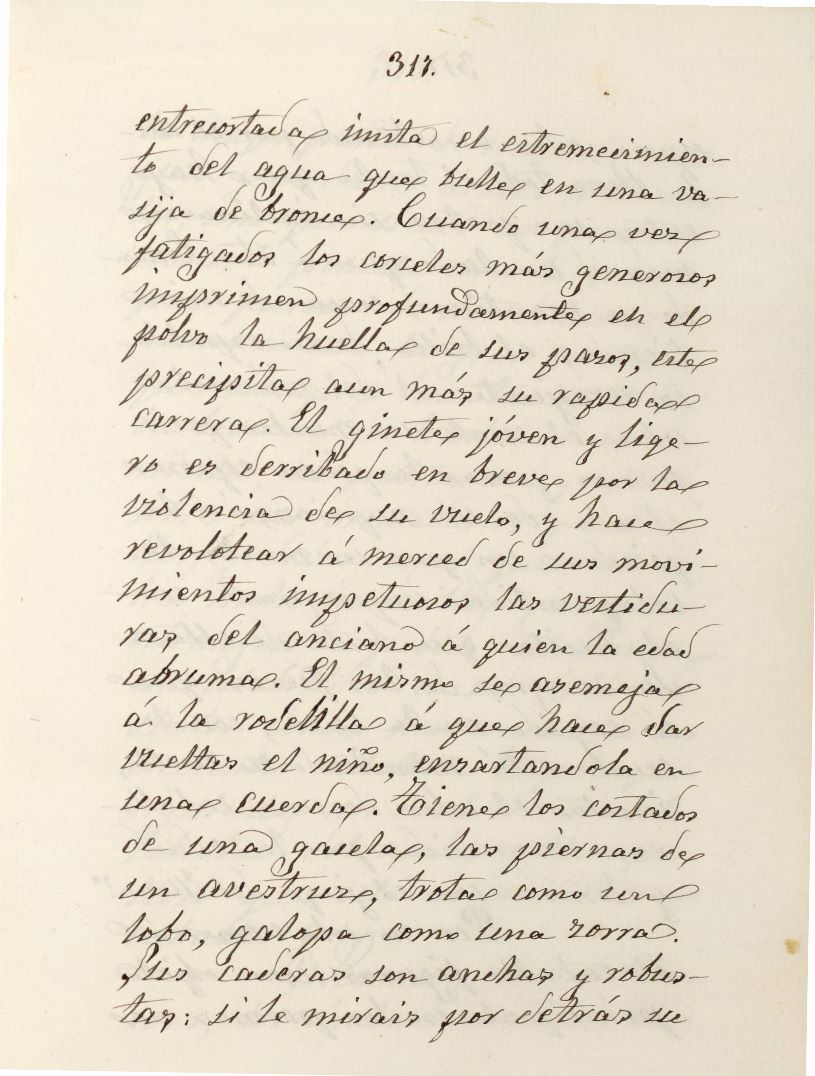 317.
entrecortada imita el estremecimien-
to del agua que bulle en una va-
sija de bronce. Cuando una vez
fatigados los corceles más generosos
imprimen profundamente en el
polvo la huella de sus pasos, este
precipita aun más su rapida
carrera. El ginete jóven y lige-
ro es derribado en breve por la
violencia de su vuelo, y hace
revolotear á merced de sus movi-
mientos impetuosos las vestidu-
ras del anciano á quien la edad
abruma. El mismo se asemeja
á la rodelilla á que hace dar
vueltas el niño, ensartandola en
una cuerda. Tiene los costados
de una gacela, las piernas de
un avestruz, trota como un
lobo, galopa como una zorra.
Sus caderas son anchas y robus-
tas: si le mirais por detrás su